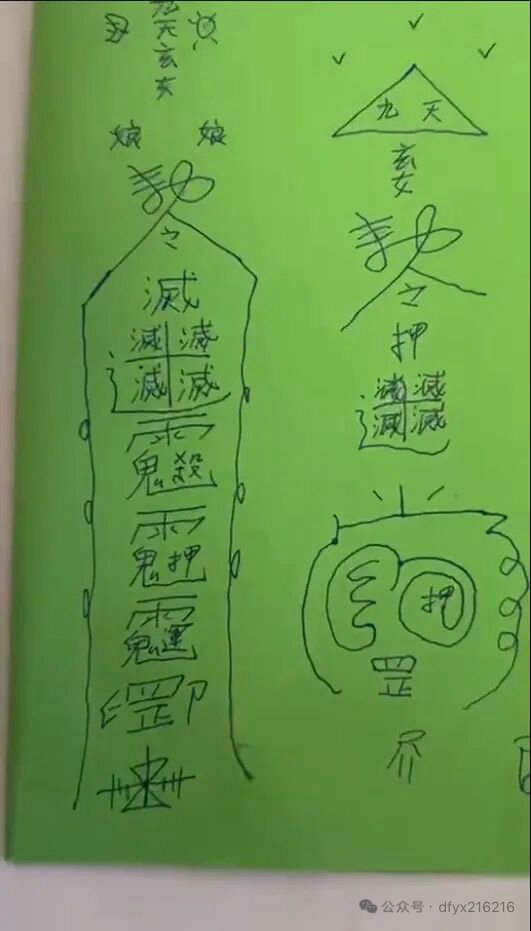 九天玄女
娘 娘
勅
之
滅
滅 滅
滅 滅
鬼 殺
鬼 押
鬼 運
罡
九 天
玄女
勅
之
押
滅 滅
滅 滅
押
罡
公众号 · dfyx216216